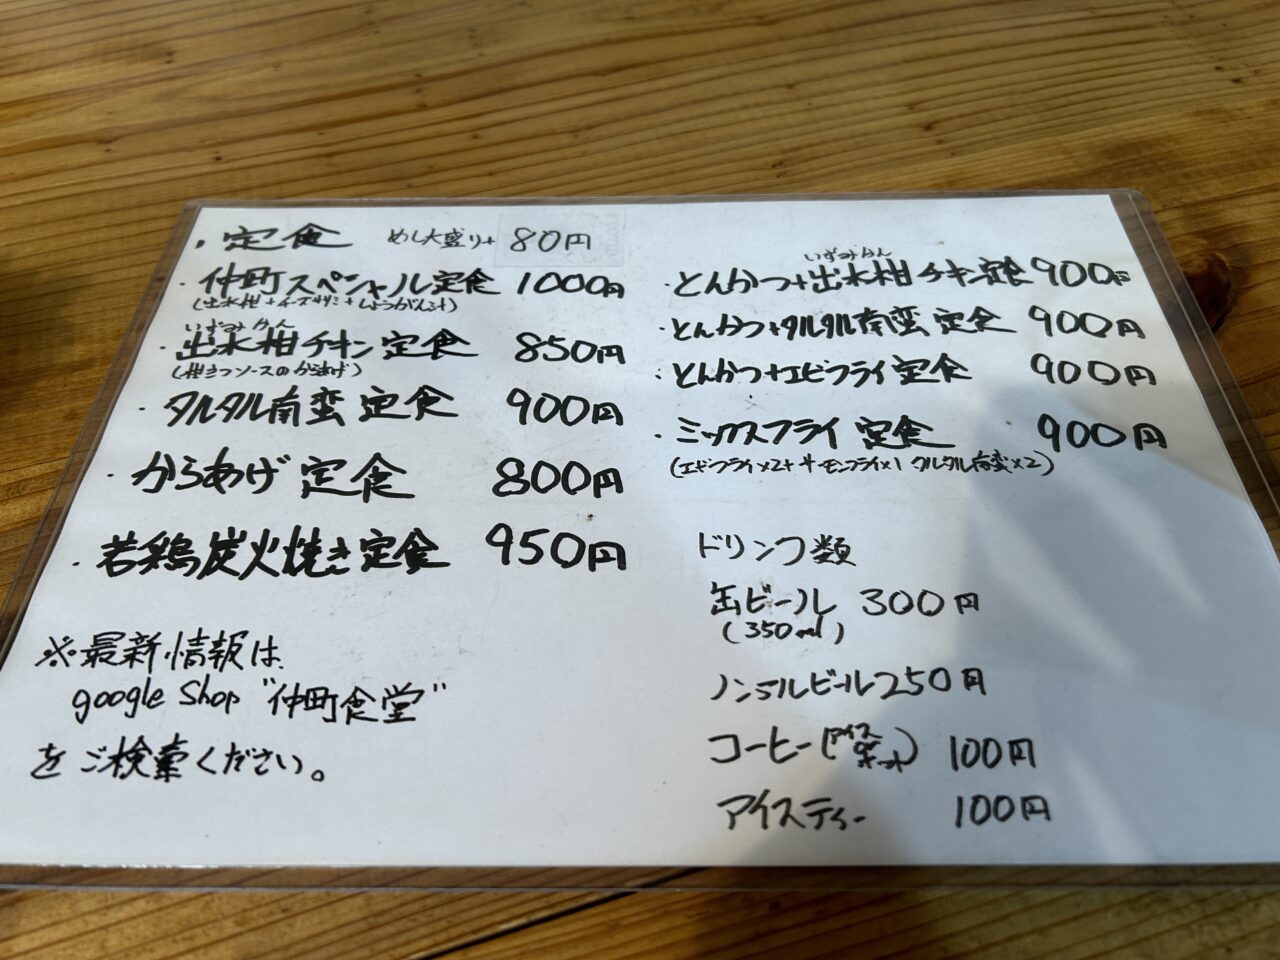 ・定食 めし大盛り+80円
・仲町スペシャル定食 1000円
(出水柑+チーズササミ+しょうがスープ
いずみかん
・出水柑チキン定食 850円
(甘さつソースのからあげ)
・タルタル南蛮定食 900円
・からあげ定食 800円
・若鶏炭火焼き定食 950円
※最新情報は
google Shop "仲町食堂"
をご検索ください。
いずみかん
・とんかつ+出水柑チキン定食 900円
・とんかつ+タルタル南蛮定食 900円
・とんかつ+エビフライ定食 900円
・ミックスフライ定食 900円
(エビフライ×2+サーモンフライ×1 タルタル南蛮×2)
ドリンク類
缶ビール 300円
(350ml)
ノンアルビール 250円
コーヒー(アイス or ホット) 100円
アイスティー 100円